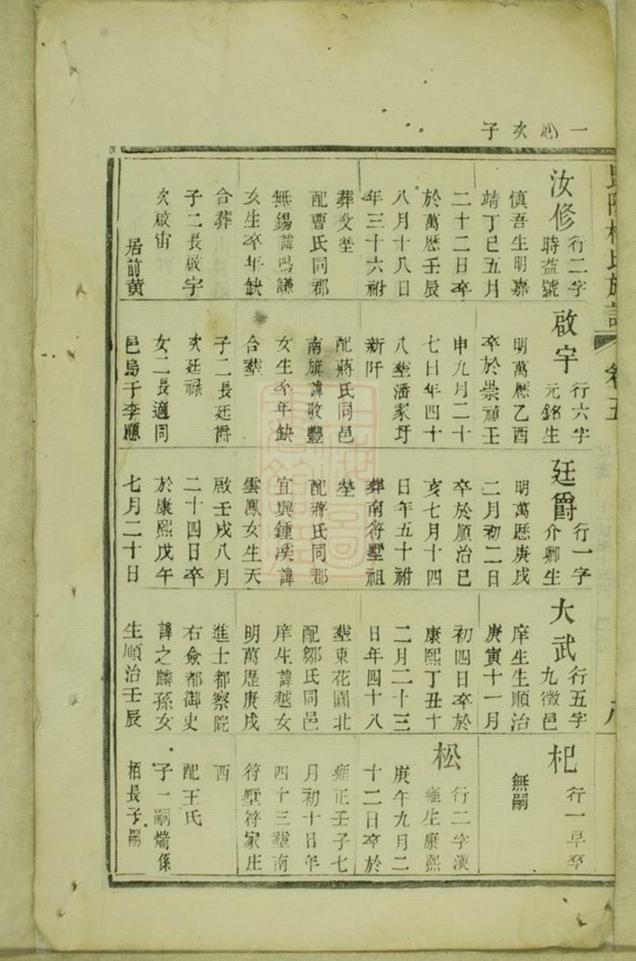 一心次子
汝修
行二字
時益號
慎吾生明嘉
靖丁巳五月
二十二日卒
於萬歷壬辰
八月十八日
年三十六祔
葬父塋
配曹氏同郡
無錫諱鳴謙
女生卒年缺
合葬
子二長啟宇
次啟宙
居前黄
啟宇
行六字
元銘生
明萬歷乙酉
卒於崇禎壬
申九月二十
七日年四十
八葬潘家圩
新阡
配蔣氏同邑
南旗諱敬豐
女生卒年缺
合葬
子二長廷爵
次廷祿
女二長適同
邑烏于李應
廷爵
行一字
介卿生
明萬歷庚戌
二月初二日
卒於順治己
亥七月十四
日年五十祔
葬南符墅祖
塋
配蔣氏同郡
宜興鍾溪諱
雲鳳女生天
啟壬戌八月
二十四日卒
於康熙戊午
七月二十日
大武
行五字
九徵邑
庠生生順治
庚寅十一月
初四日卒於
康熙丁丑十
二月二十三
日年四十八
葬東花園北
配鄒氏同邑
庠生諱越女
明萬歷庚戌
進士都察院
右僉都御史
諱之麟孫女
生順治壬辰
杞
行一早卒
無嗣
松
行二字漢
產生康熙
庚午九月二
十二日卒於
雍正壬子七
月初十日年
四十三葬南
符墅符家庄
西
配王氏
子一嗣熵係
栢長子嗣
氏族譜
卷五
八